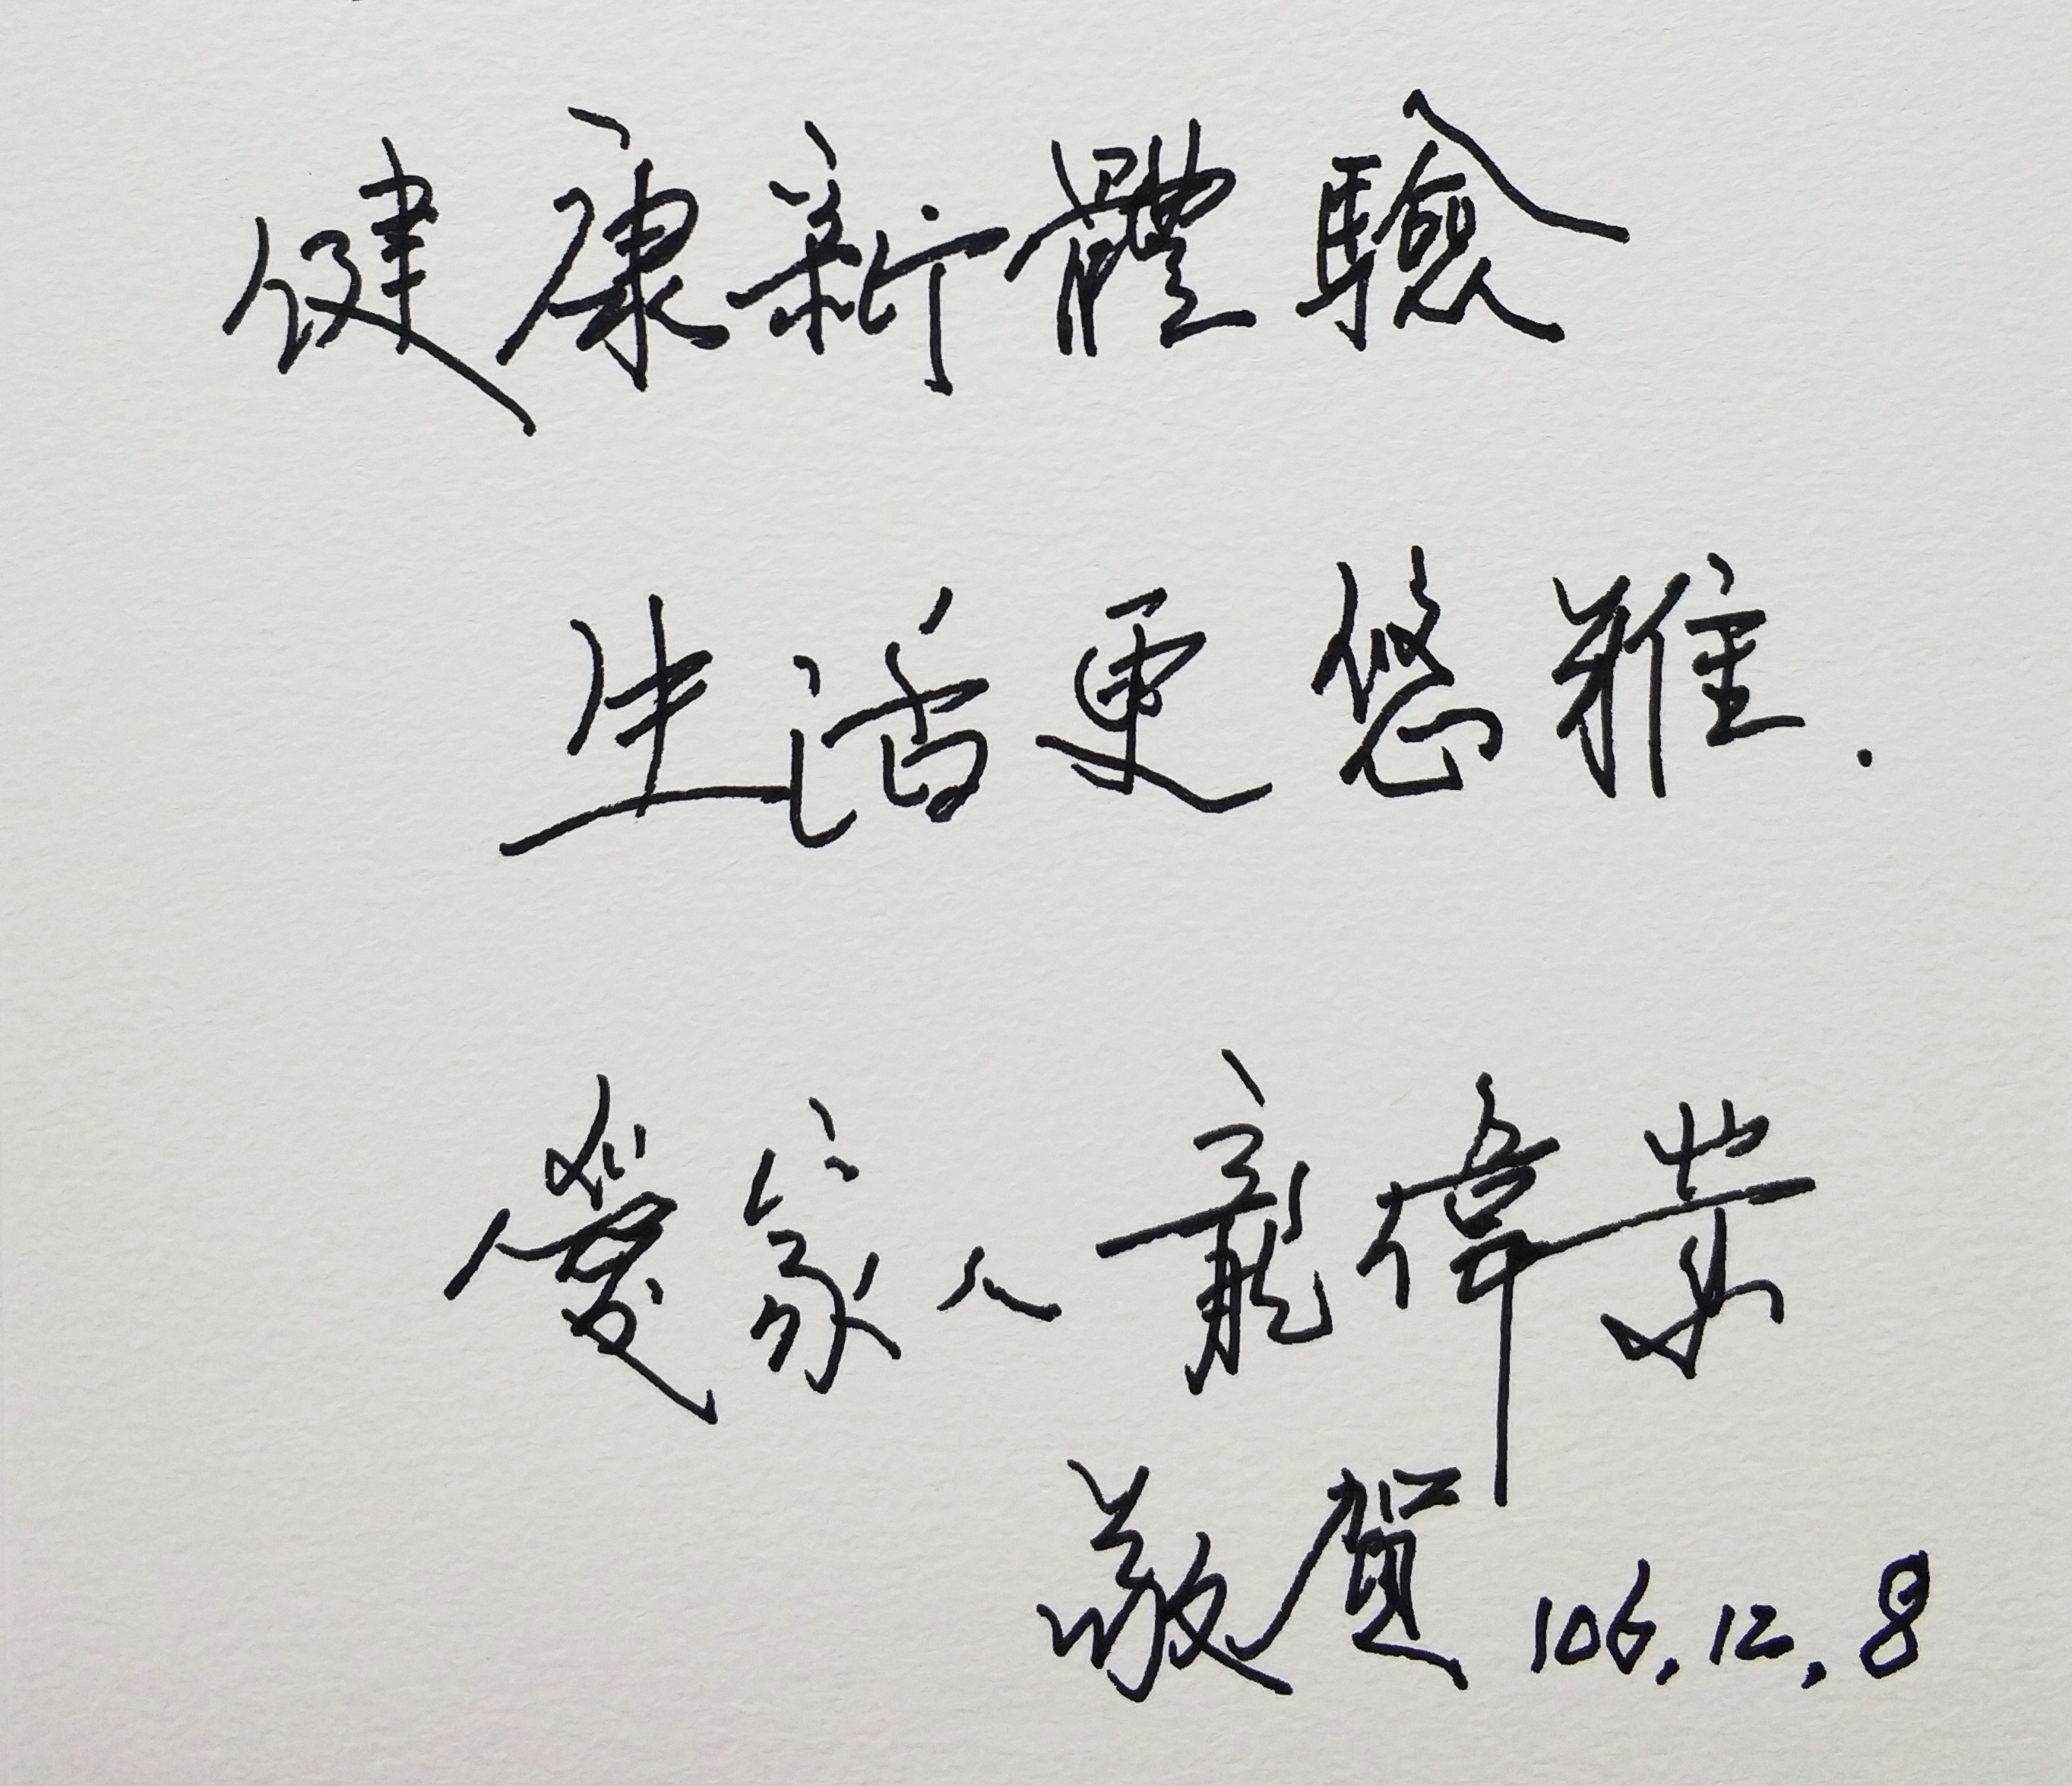 健康新體驗
生活更悠雅.
愛家人龍偉業
敬賀 106.12.8